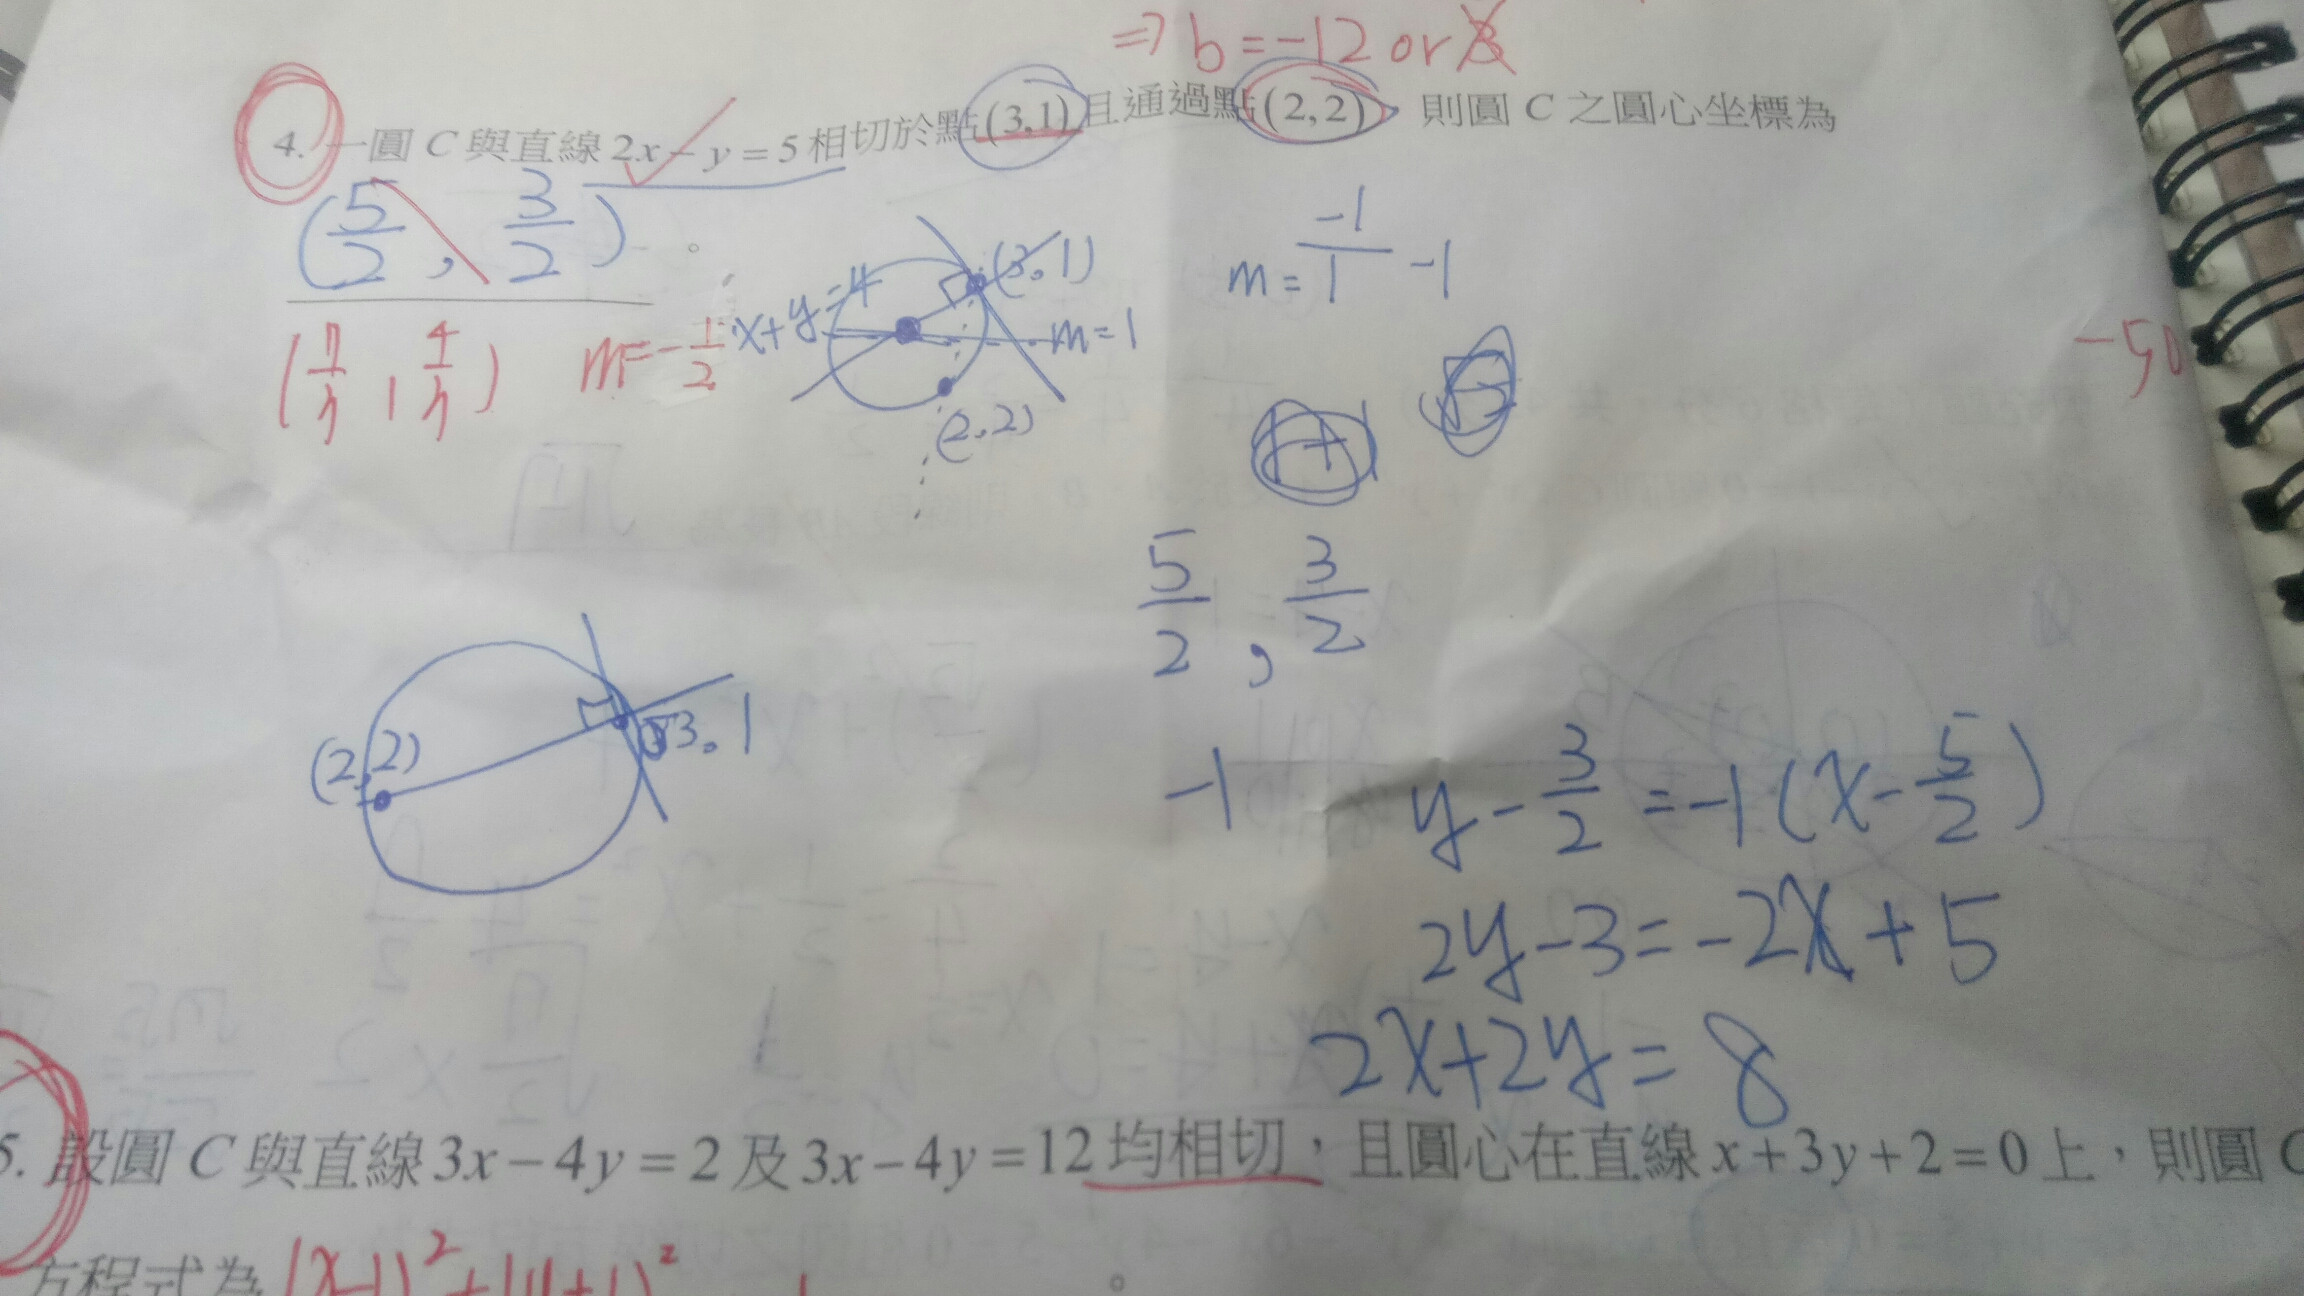 ⇒ b = -12 or 3
4. 一圓 C 與直線 2x - y = 5 相切於點 (3,1) 且通過點 (2,2),則圓 C 之圓心坐標為
(5/2, 3/2)。
(7/3, 4/3)
m = -1/2
x+y=4
(3,1)
m=1
(2,2)
m = -1/1 -1
1+1
-50
5/2, 3/2
(2,2)
3,1
-1
y - 3/2 = -1(x - 5/2)
2y-3=-2x+5
2x+2y=8
5. 設圓 C 與直線 3x-4y=2 及 3x-4y=12 均相切,且圓心在直線 x+3y+2=0 上,則圓 C
方程式為 (x-1)²+(y+1)²